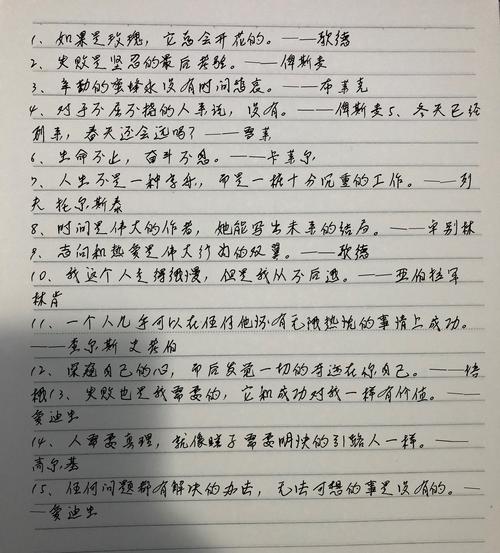 1、如果是玫瑰，它总会开花的。——歌德
2、失败是坚忍的最后考验。——俾斯麦
3、辛勤的蜜蜂永没有时间悲哀。——布莱克
4、对于不屈不挠的人来说，没有。——俾斯麦5、冬天已经
到来，春天还会远吗？——雪莱
6、生命不止，奋斗不息。——卡莱尔
7、人生不是一种享乐，而是一桩十分沉重的工作。——列
夫托尔斯泰
8、时间是伟大的作者，她能写出未来的结局。——卓别林
9、志向和热爱是伟大行为的双翼。——歌德
10、我这个人走得很慢，但是我从不后退。——亚伯拉罕
林肯
11、一个人几乎可以在任何他怀有无限热忱的事情上成功。
——查尔斯 史考伯
12、深窥自己的心，而后发觉一切的奇迹在你自己。——培
根13、失败也是我需要的，它和成功对我一样有价值。——
爱迪生
14、人需要真理，就像瞎子需要明快的引路人一样。——
高尔基
15、任何问题都有解决的办法，无法可想的事是没有的。—
—爱迪生